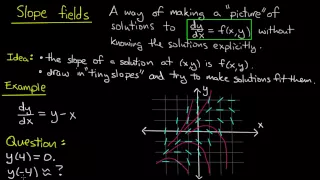 Slope fields
A way of making a "picture" of
solutions to dy/dx = f(x,y) without
knowing the solutions explicitly.
Idea: • the slope of a solution at (x,y) is f(x,y).
• draw in "tiny slopes" and try to make solutions fit them.
Example
dy/dx = y - x
y
x
Question:
y(4) = 0.
y(-4) ≈ ?